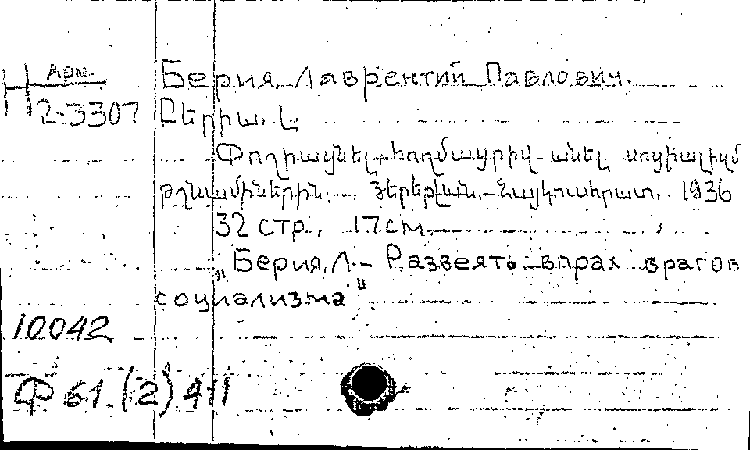 Арм.
Н 2-3307
Берия Лаврентий Павлович.
Բերիա. Լ.
Փոշիացնել, հողմացրիվ անել սոցիալիզմի
թշնամիներին. Երեվան, Հայկուսհրատ, 1936
32 стр., 17 cm
"Берия, Л. - Развеять в прах врагов
социализма"
10042
Ф 61 (2) 411